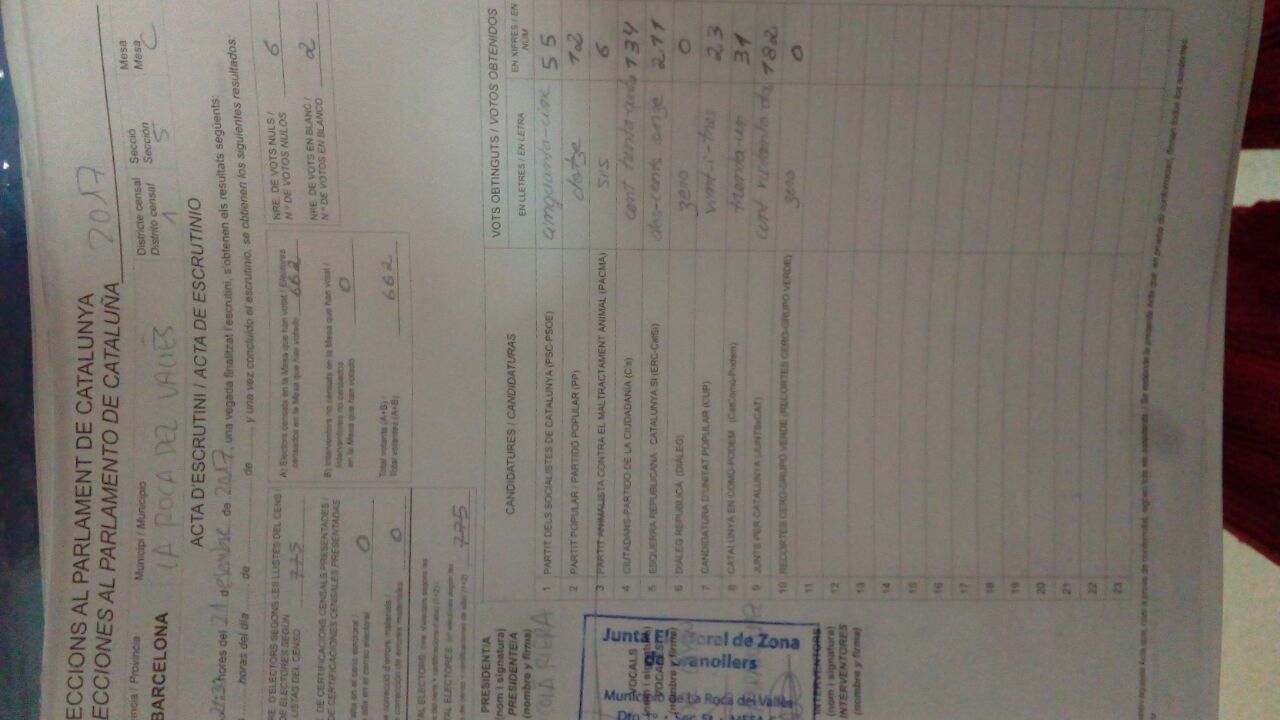 ECCIONS AL PARLAMENT DE CATALUNYA
ECCIONES AL PARLAMENTO DE CATALUÑA 2017
íncia / Provincia
BARCELONA
Municipi / Municipio
LA ROCA DEL VALLÈS
Districte censal
Distrito censal
1
Secció
Sección
5
Mesa
Mesa
C
ACTA D'ESCRUTINI / ACTA DE ESCRUTINIO
hores del 21 d de 2017, una vegada finalitzat l'escrutini, s'obtenen els resultats següents:
horas del día de de , y una vez concluido el escrutinio, se obtienen los siguientes resultados:
E D'ELECTORS SEGONS LES LLISTES DEL CENS /
DE ELECTORES SEGÚN
LISTAS DEL CENSO 775
DE CERTIFICACIONS CENSALS PRESENTADES /
DE CERTIFICACIONES CENSALES PRESENTADAS
0
0
775
A) Electors censats en la Mesa que han votat / Electores
censados en la Mesa que han votado 662
B) Interventors no censats en la Mesa que han votat /
Interventores no censados
en la Mesa que han votado 0
Total votants (A+B) /
Total votantes (A+B) 662
NRE. DE VOTS NULS /
N.º DE VOTOS NULOS 6
NRE. DE VOTS EN BLANC /
N.º DE VOTOS EN BLANCO 2
CANDIDATURES / CANDIDATURAS
VOTS OBTINGUTS / VOTOS OBTENIDOS
EN LLETRES / EN LETRA
EN XIFRES / EN NÚM
1 PARTIT DELS SOCIALISTES DE CATALUNYA (PSC-PSOE) cinquanta-cinc 55
2 PARTIT POPULAR / PARTIDO POPULAR (PP) dotze 12
3 PARTIT ANIMALISTA CONTRA EL MALTRACTAMENT ANIMAL (PACMA) sis 6
4 CIUTADANS-PARTIDO DE LA CIUDADANÍA (C's) cent trenta 134
5 ESQUERRA REPUBLICANA CATALUNYA SI (ERC-CatSí) dos-cents onze 211
6 DIÀLEG REPUBLICÀ (DIÀLEG) zero 0
7 CANDIDATURA D'UNITAT POPULAR (CUP) vint-i-tres 23
8 CATALUNYA EN COMÚ-PODEM (CatComú-Podem) trenta-un 31
9 JUNTS PER CATALUNYA (JUNTSxCAT) cent vuitanta dos 182
10 RECORTES CERO-GRUPO VERDE (RECORTES CERO-GRUPO VERDE) zero 0
11
12
13
14
15
16
17
18
19
20
21
22
23
PRESIDENT/A
(nom i signatura)
PRESIDENTE/A
(nombre y firma)
VOCALS
(nom i signatura)
VOCALES
(nombre y firma)
INTERVENTORS
(nom i signatura)
INTERVENTORES
(nombre y firma)
Junta Electoral de Zona
de Granollers
Municipio de La Roca del Vallès